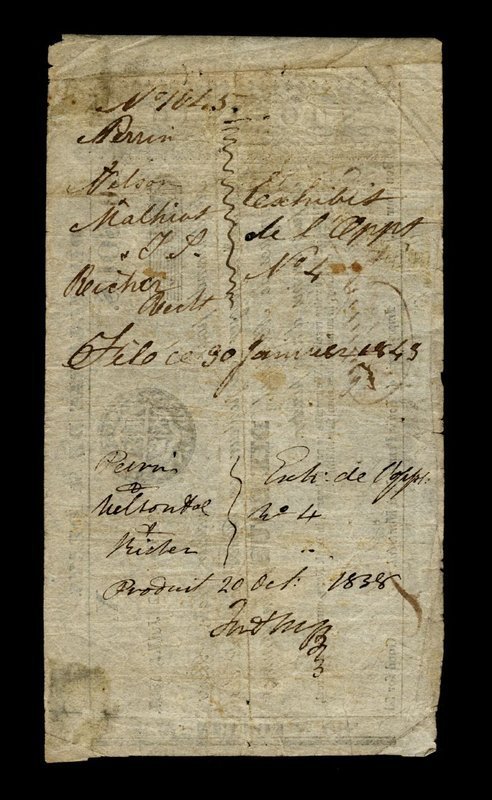 No 1645.
Perrin
Nelson
Mathiot
& T. S.
Richer
Exhibit
de l'Oppt
No 4
Filé ce 30 Janvier 1843
Perrin
&
Nelson &al
&
Richer
Exh: de l'oppt:
No 4
Produit 20 Oct: 1838